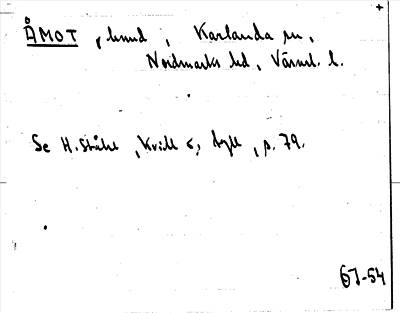 ÅMOT, hmd, Karlanda sn,
Nordmarks hd, Värml. l.
Se H. Ståhl, Kvill o, hyll, p. 79.
67-54